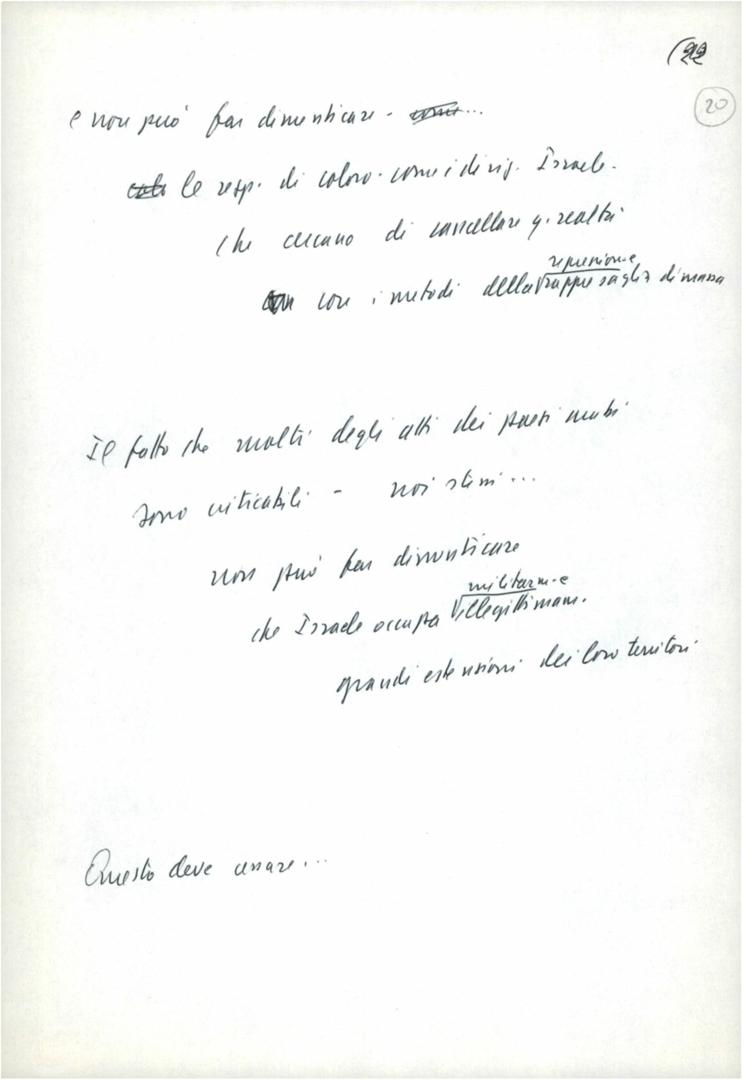 (22
20
e non può far dimenticare - come...
le resp. di coloro - come i dirig. Israele -
che cercano di cancellare q. realtà
con i metodi della repressione
rappresaglia di massa
Il fatto che molti degli atti dei paesi arabi
sono criticabili - noi stessi...
non può far dimenticare
che Israele occupa militarm-e
illegittimam.
grandi estensioni dei loro territori
Questo deve cessare...